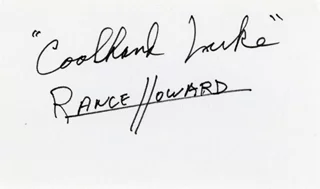 "Coolhand Luke"
Rance Howard